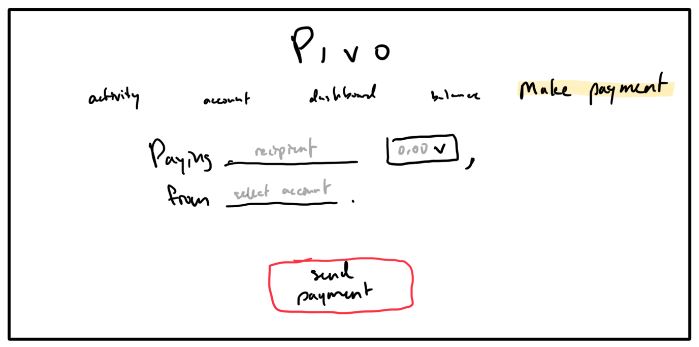 Pivo
activity account dashboard balance Make payment
Paying recipient 0.00 v ,
from select account .
send
payment